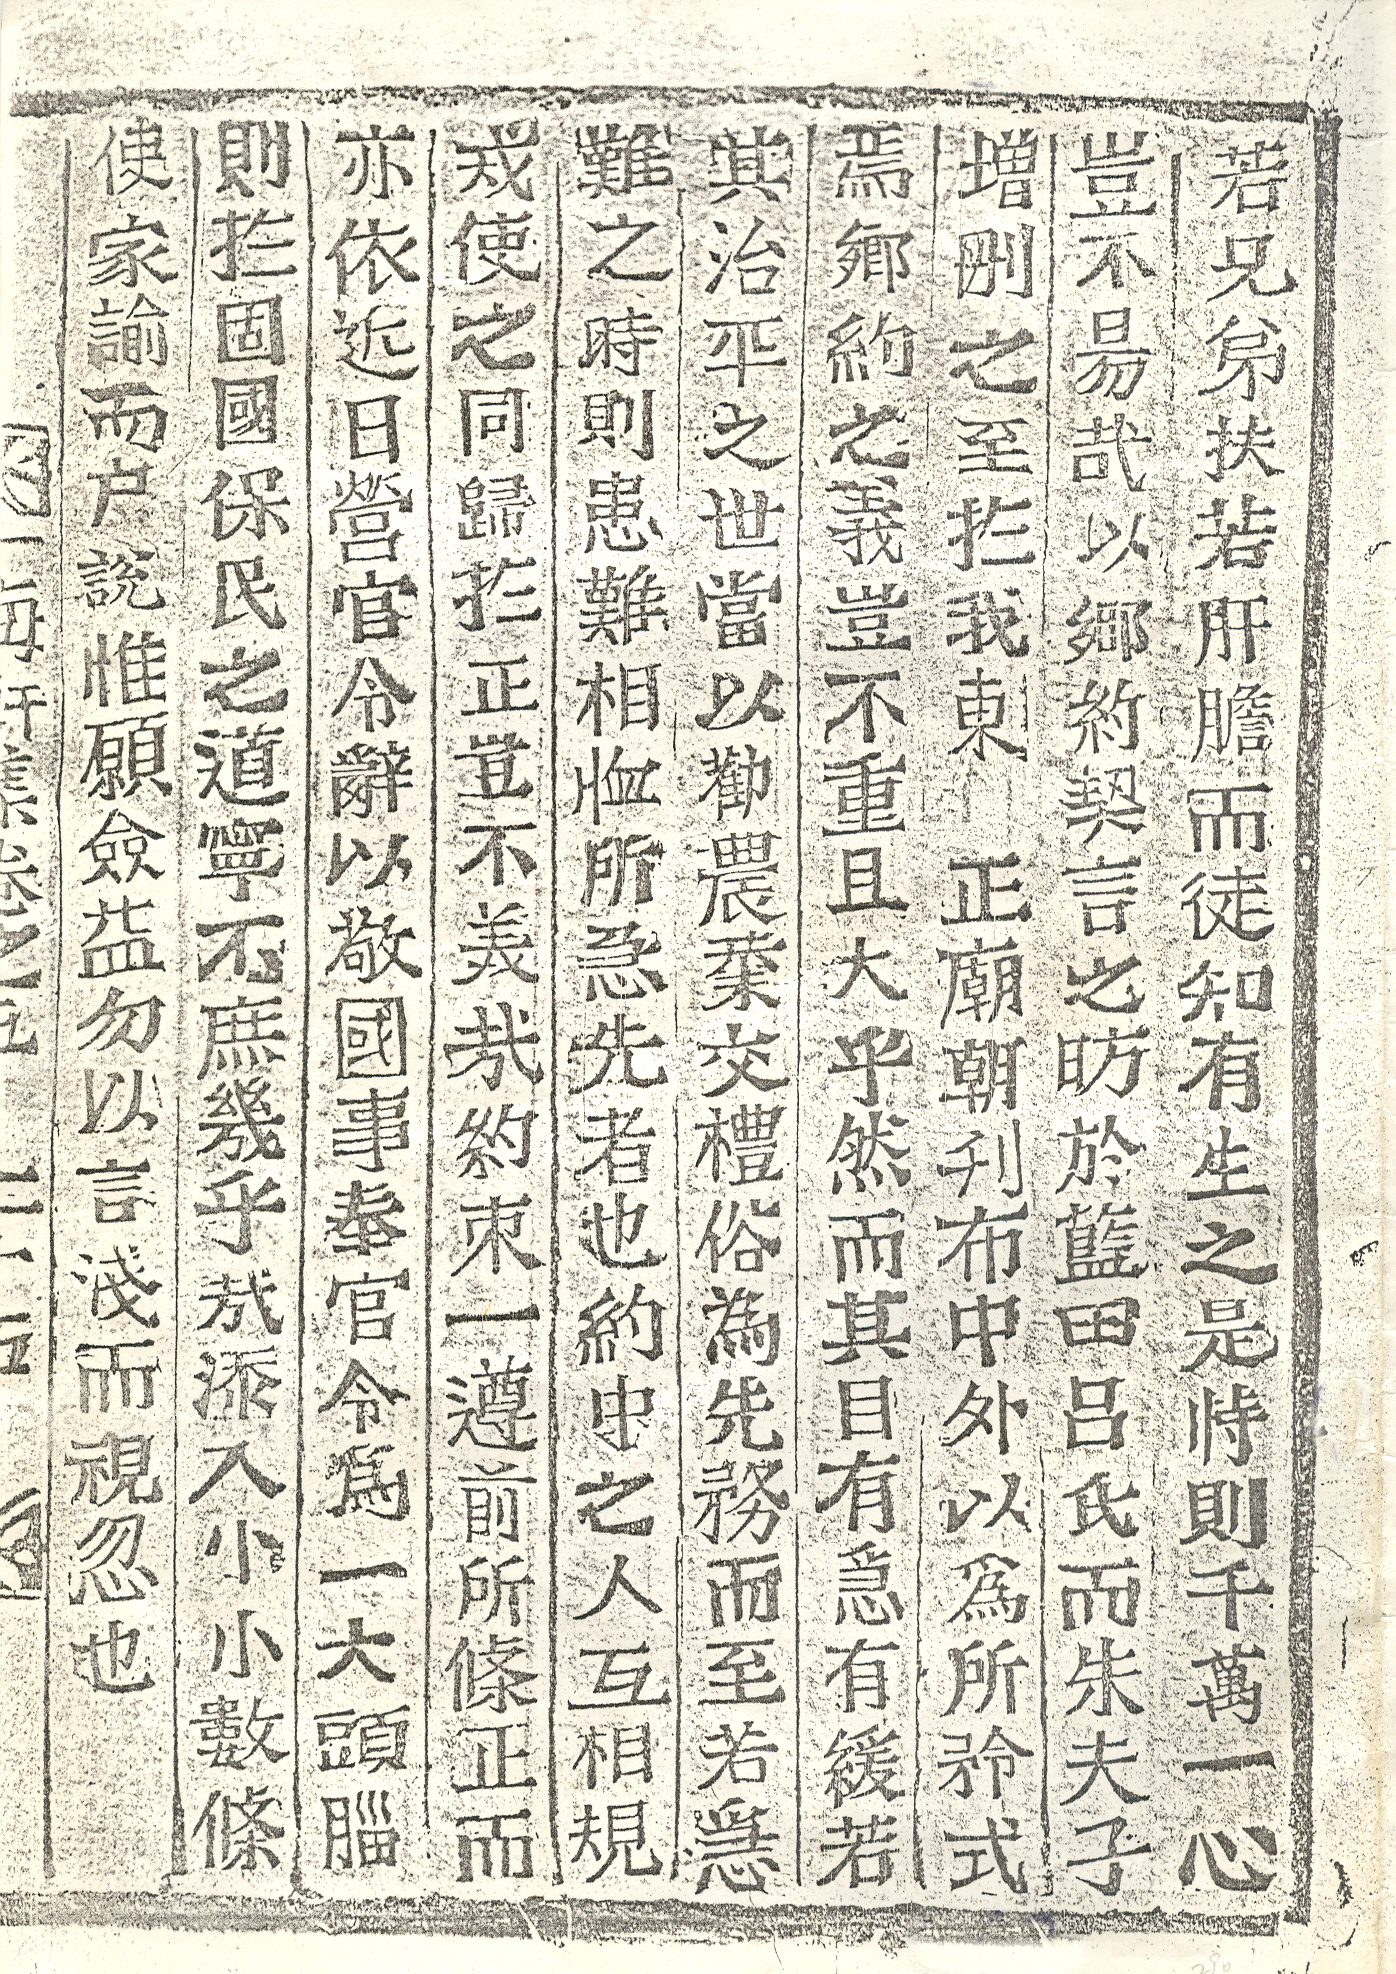 若兄弟扶若肝膽而徒知有生之是恃則千萬一心
豈不易哉以鄕約契言之昉於藍田呂氏而朱夫子
增刪之至扵我東 正廟朝刊布中外以爲所矜式
焉鄕約之義豈不重且大乎然而其目有急有緩若
其治平之世當以勸農桒交禮俗為先務而至若急
難之時則患難相恤所急先者也約中之人互相規
戒使之同歸扵正豈不美哉約束一遵前所條正而
亦依近日營官令辭以敬國事奉官令爲一大頭腦
則扵固國保民之道寧不庶幾乎哉添入小小數條
使家諭而户說惟願僉益勿以言淺而視忽也